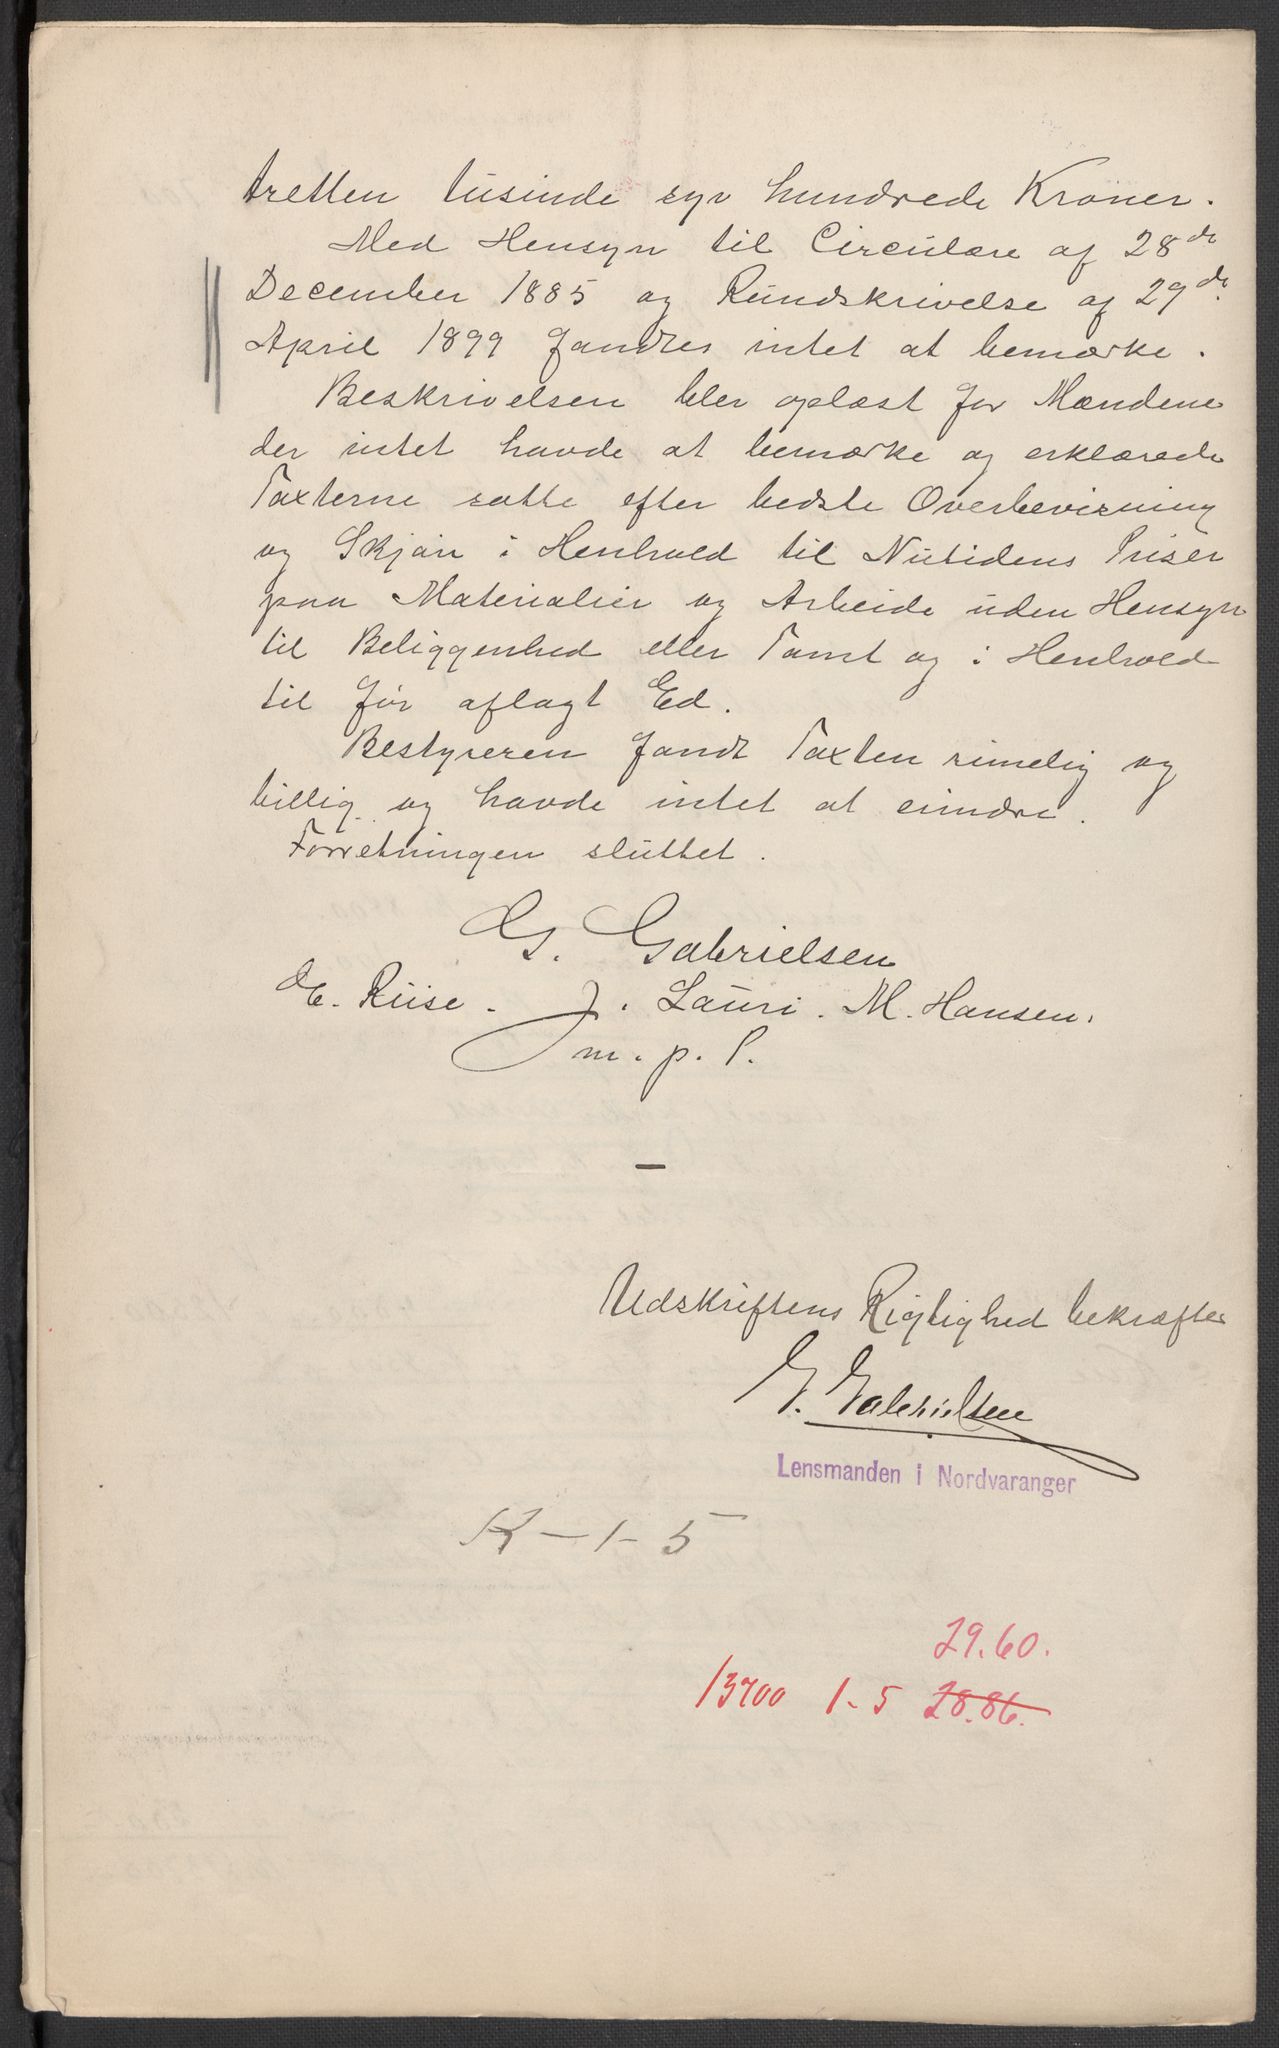 tretten tusinde syv hundrede Kroner.
Med Hensyn til Circulære af 28de
December 1885 og Rundskrivelse af 29de
April 1899 fandtes intet at bemærke.
Beskrivelsen blev oplæst for Mændene
der intet havde at bemærke og erklærede
Taxterne satte efter bedste Overbevisning
og Skjøn i Henhold til Nutidens Priser
paa Materialier og Arbeide uden Hensyn
til Beliggenhed eller Tomt og i Henhold
til før aflagt Ed.
Bestyreren fandt Taxten rimelig og
billig og havde intet at erindre.
Forretningen sluttet.
G. Gabrielsen
E. Riise. J. Lauri. M. Hansen.
m. p. P.
—
Udskriftens Rigtighed bekræftes
G. Gabrielsen
Lensmanden i Nordvaranger
K-1-5
29.60.
13700 1-5 28.86.